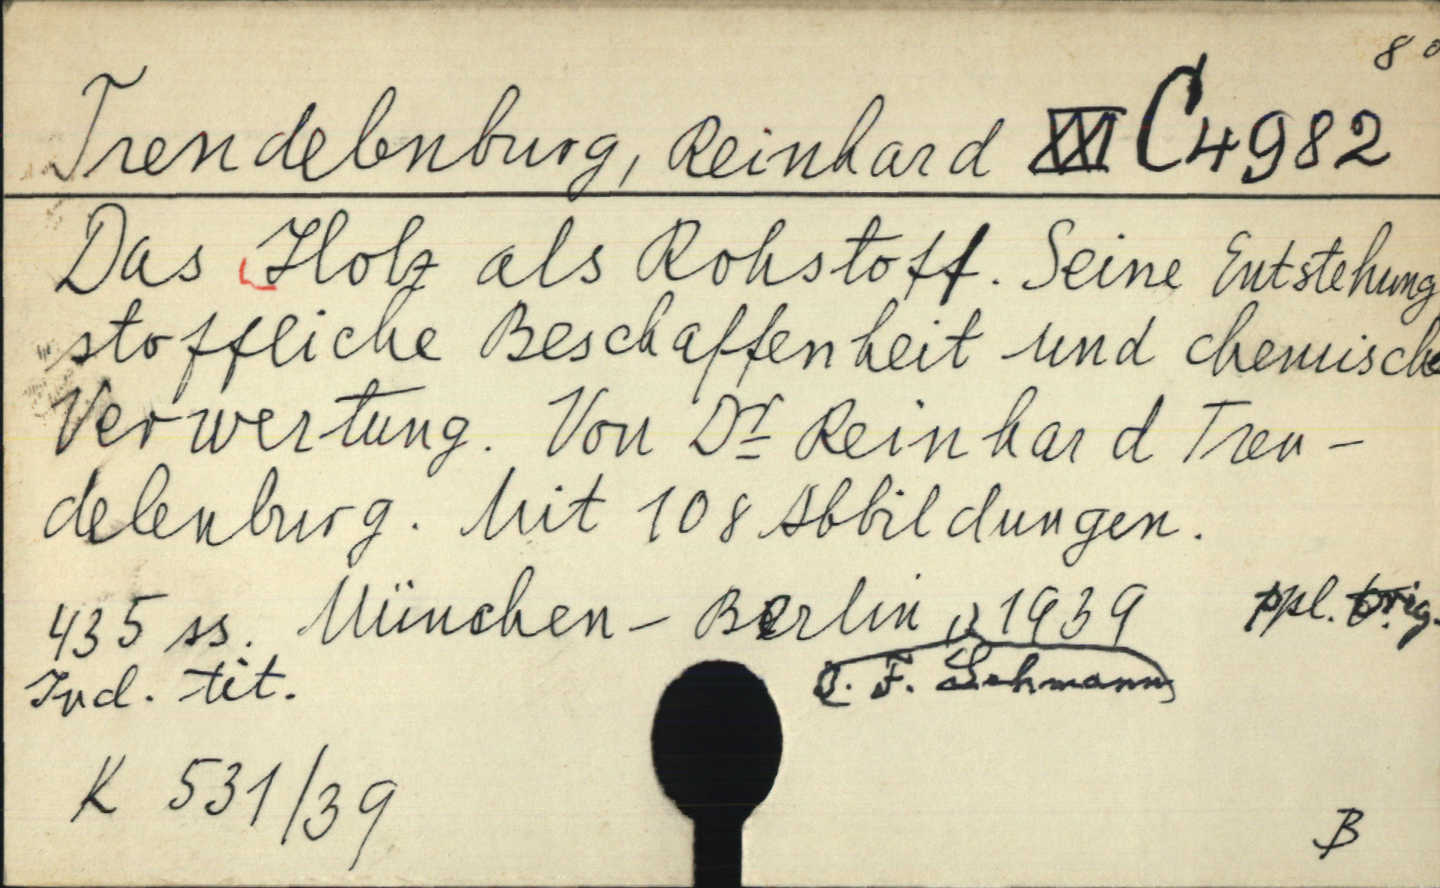 8°
Trendelenburg, Reinhard XXI C4982
Das Holz als Rohstoff. Seine Entstehung
stoffliche Beschaffenheit und chemische
Verwertung. Von Dr Reinhard Tren-
delenburg. Mit 108 Abbildungen.
435 ss. München - Berlin, 1939 ppl. orig.
Ind. tit. J. F. Lehmann
K 531/39
B